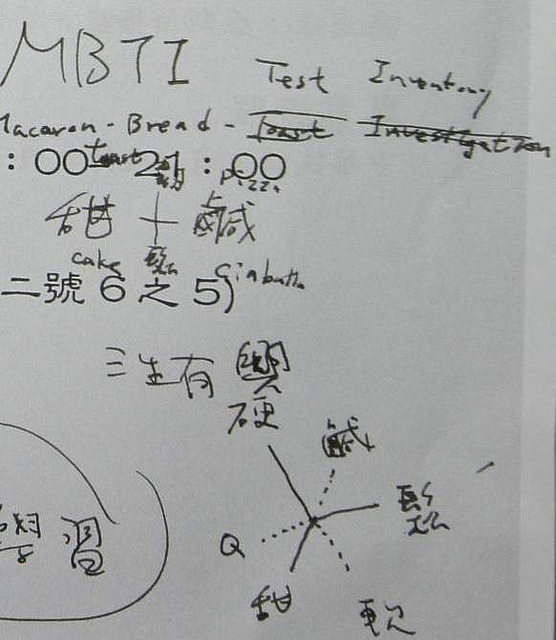 MBTI Test Inventory
Macaron - Bread - Toast Investigation
: 00 toast 21 : 00
pizza
甜 + 鹹
cake 鬆 Ciabatta
二號 6 之 5)
三生有
硬
鹹
鬆
Q
甜
軟
學習